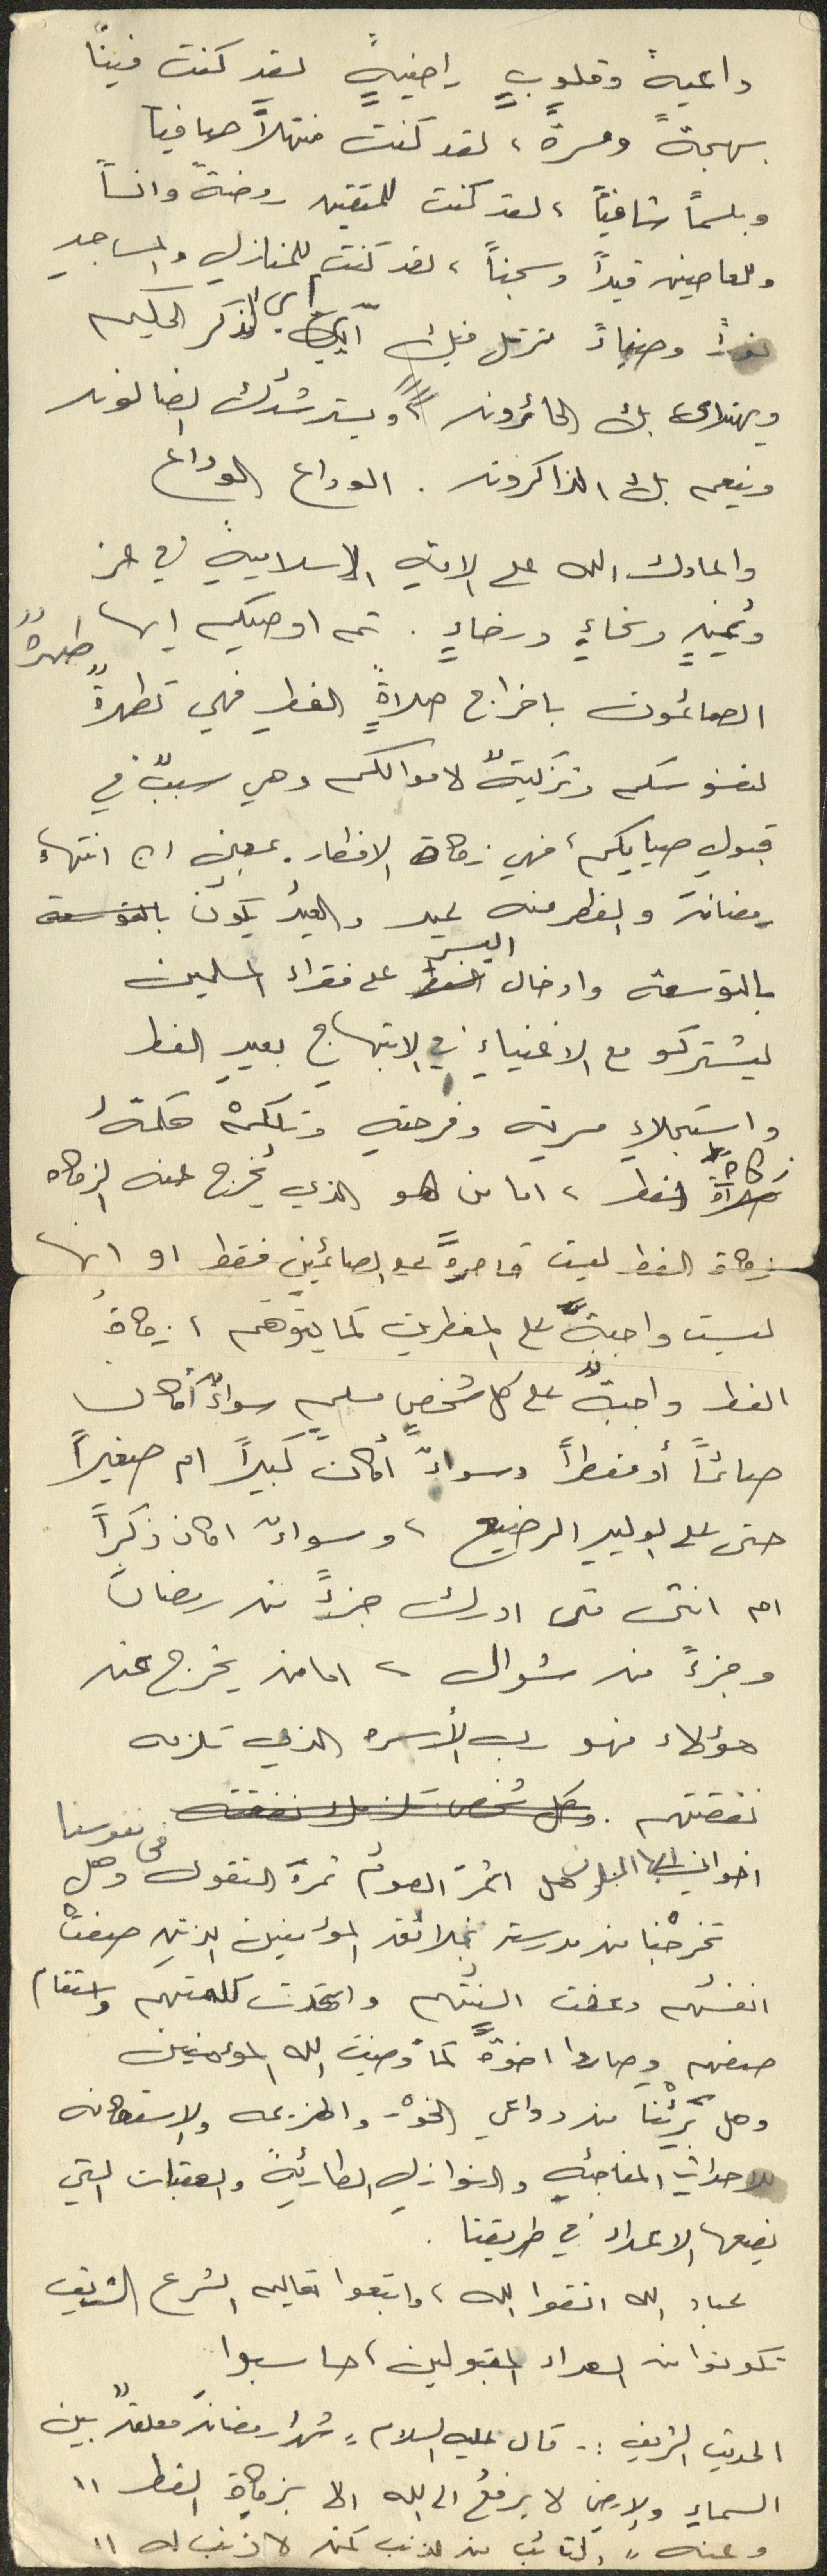 داعيةً وقلوبٍ راضيةٍ لقد كنت فينا
بهجةً ومسرةً ، لقد كنت منهلاً صافياً
وبلسماً شافياً ، لقد كنت للمتقين روضةً وانساً
وللعاصين قيداً وسجناً ، لقد كنت للمنازلِ والمساجدِ
نوراً وضياءً ترتل فيك آي الذكر الحكيم
ويهتدى بك الحائرون ، ويسترشدك الضالون
وينعم بك الذاكرون . الوداع الوداع
واعادك الله على الامةِ الاسلاميةِ في عز
ويُمنٍ وسخاءٍ ورخاءٍ . ثم اوصيكم ايها
الصائمون باخراج صلاةِ الفطرِ فهي تطهرةٌ طهرةٌ
لنفوسكم وتزكيةٌ لاموالكم وهي سببٌ في
قبولِ صيايكم ، فهي زكاة الافطار . بمعنى ان انتهاء
رمضانَ والفطر منه عيد والعيدُ يكونُ بالتوسعة
بالتوسعة وادخال اليسر على فقراء المسلمين
ليشتركو مع الاغنياءِ في الابتهاجِ بعيدِ الفطر
واستجلاءِ مسرته وفرحتهِ وتلكمْ حكمةُ
زكاة الفطر ، اما من هو الذي يُخرج عنه الزكاه
زكاة الفطر ليست قاصرةً على الصائمين فقط او انها
ليست واجبةً على المفطرين كما يتوهم ، زكاةُ
الفطر واجبةٌ على كل شخصٍ مسلمٍ سواءٌ أكان
صائماً أو مفطراً وسواءٌ أكان كبيراً ام صغيراً
حتى على الوليدِ الرضيع ، وسواءٌ اكان ذكراً
ام انثى متى ادرك جزءً من رمضانَ
وجزءً من شوال ، اما من يخرج عن
هؤلاء فهو رب الأسره الذي تلزمه
نفقتهم . وكل شخص تلزمك نفقته
اخواني ايها المسلمون هل اثمرَ الصومُ ثمرةَ التقوى في نفوسنا وهل
تخرجْنا من مدرسته بخلائق المؤمنين الذين صفتْ
انفسُهم وعفت السنتُهم واتحدت كلمتهم واستقام
صفهم وصاروا اخوةً كما وصف الله المؤمنين
وهل بَرِئْنا من دواعي الخور والهزيمه والاستكانه
للاحداثِ المفاجئهِ والنوازلِ الطارئةِ والعقبات التي
يضعها الاعداء في طريقنا .
عباد الله اتقوا الله ، واتبعوا تعاليم الشرع الشريف
تكونوا من السعداء المقبولين ، حاسبوا
الحديث الشريف :- قال عليه السلام " شهرُ رمضانَ معلقٌ بين
السماءِ والارضِ لا يرفعُ الى الله الا بزكاةِ الفطر "
وعنه " التائب من الذنب كمن لا ذنب له "